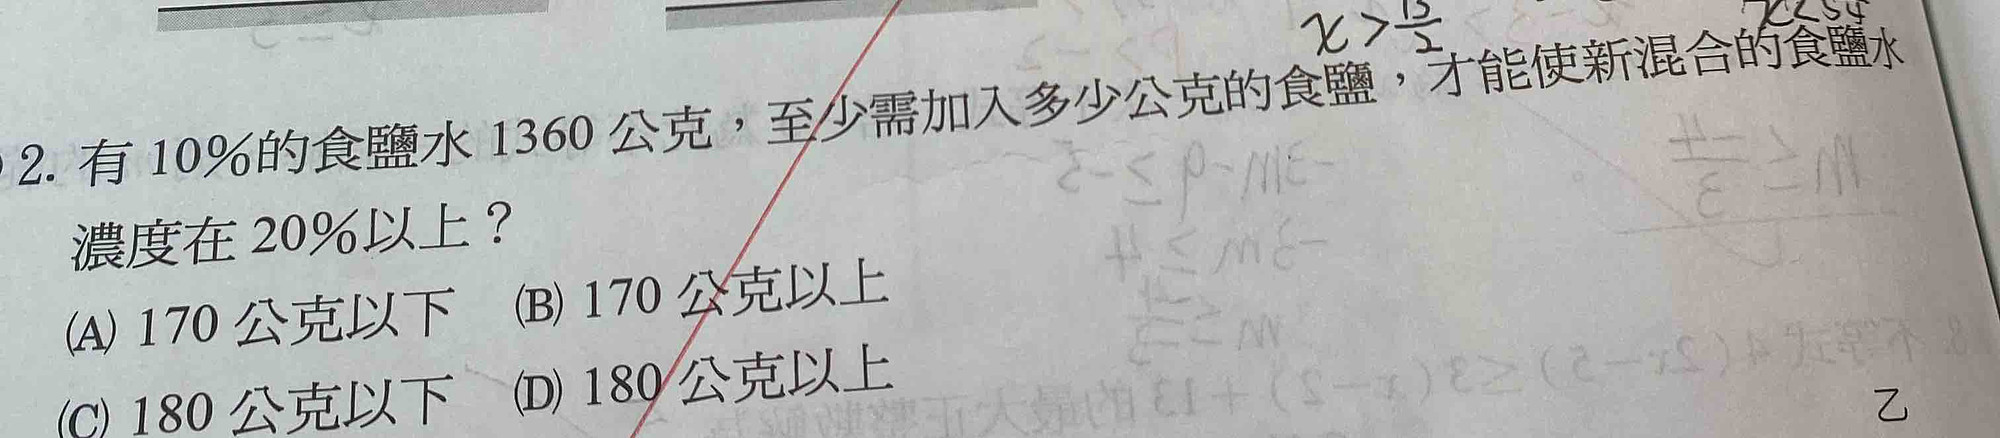 x>13/2
x<54
2. 有 10%的食鹽水 1360 公克，至少需加入多少公克的食鹽，才能使新混合的食鹽水
濃度在 20%以上？
(A) 170 公克以下 (B) 170 公克以上
(C) 180 公克以下 (D) 180 公克以上
乙